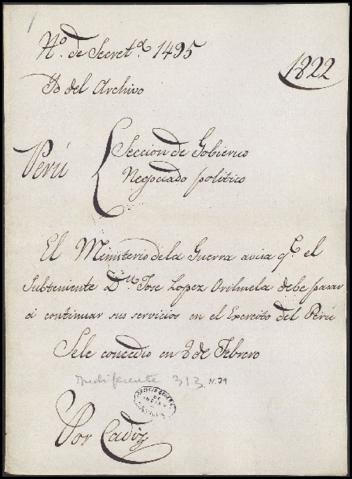 Nº. de Secret.ª 1495
1822
Yd del Archivo
Perú
Seccion de Gobierno
Negociado politico
El Ministerio de la Guerra avisa q.e el
Subteniente D.n Jose Lopez Orihuela debe pasar
á continuar sus servicios en el Exercito del Perú
Se le concedio en 2 de Febrero
Indiferente 313 N.71
Por Cadiz